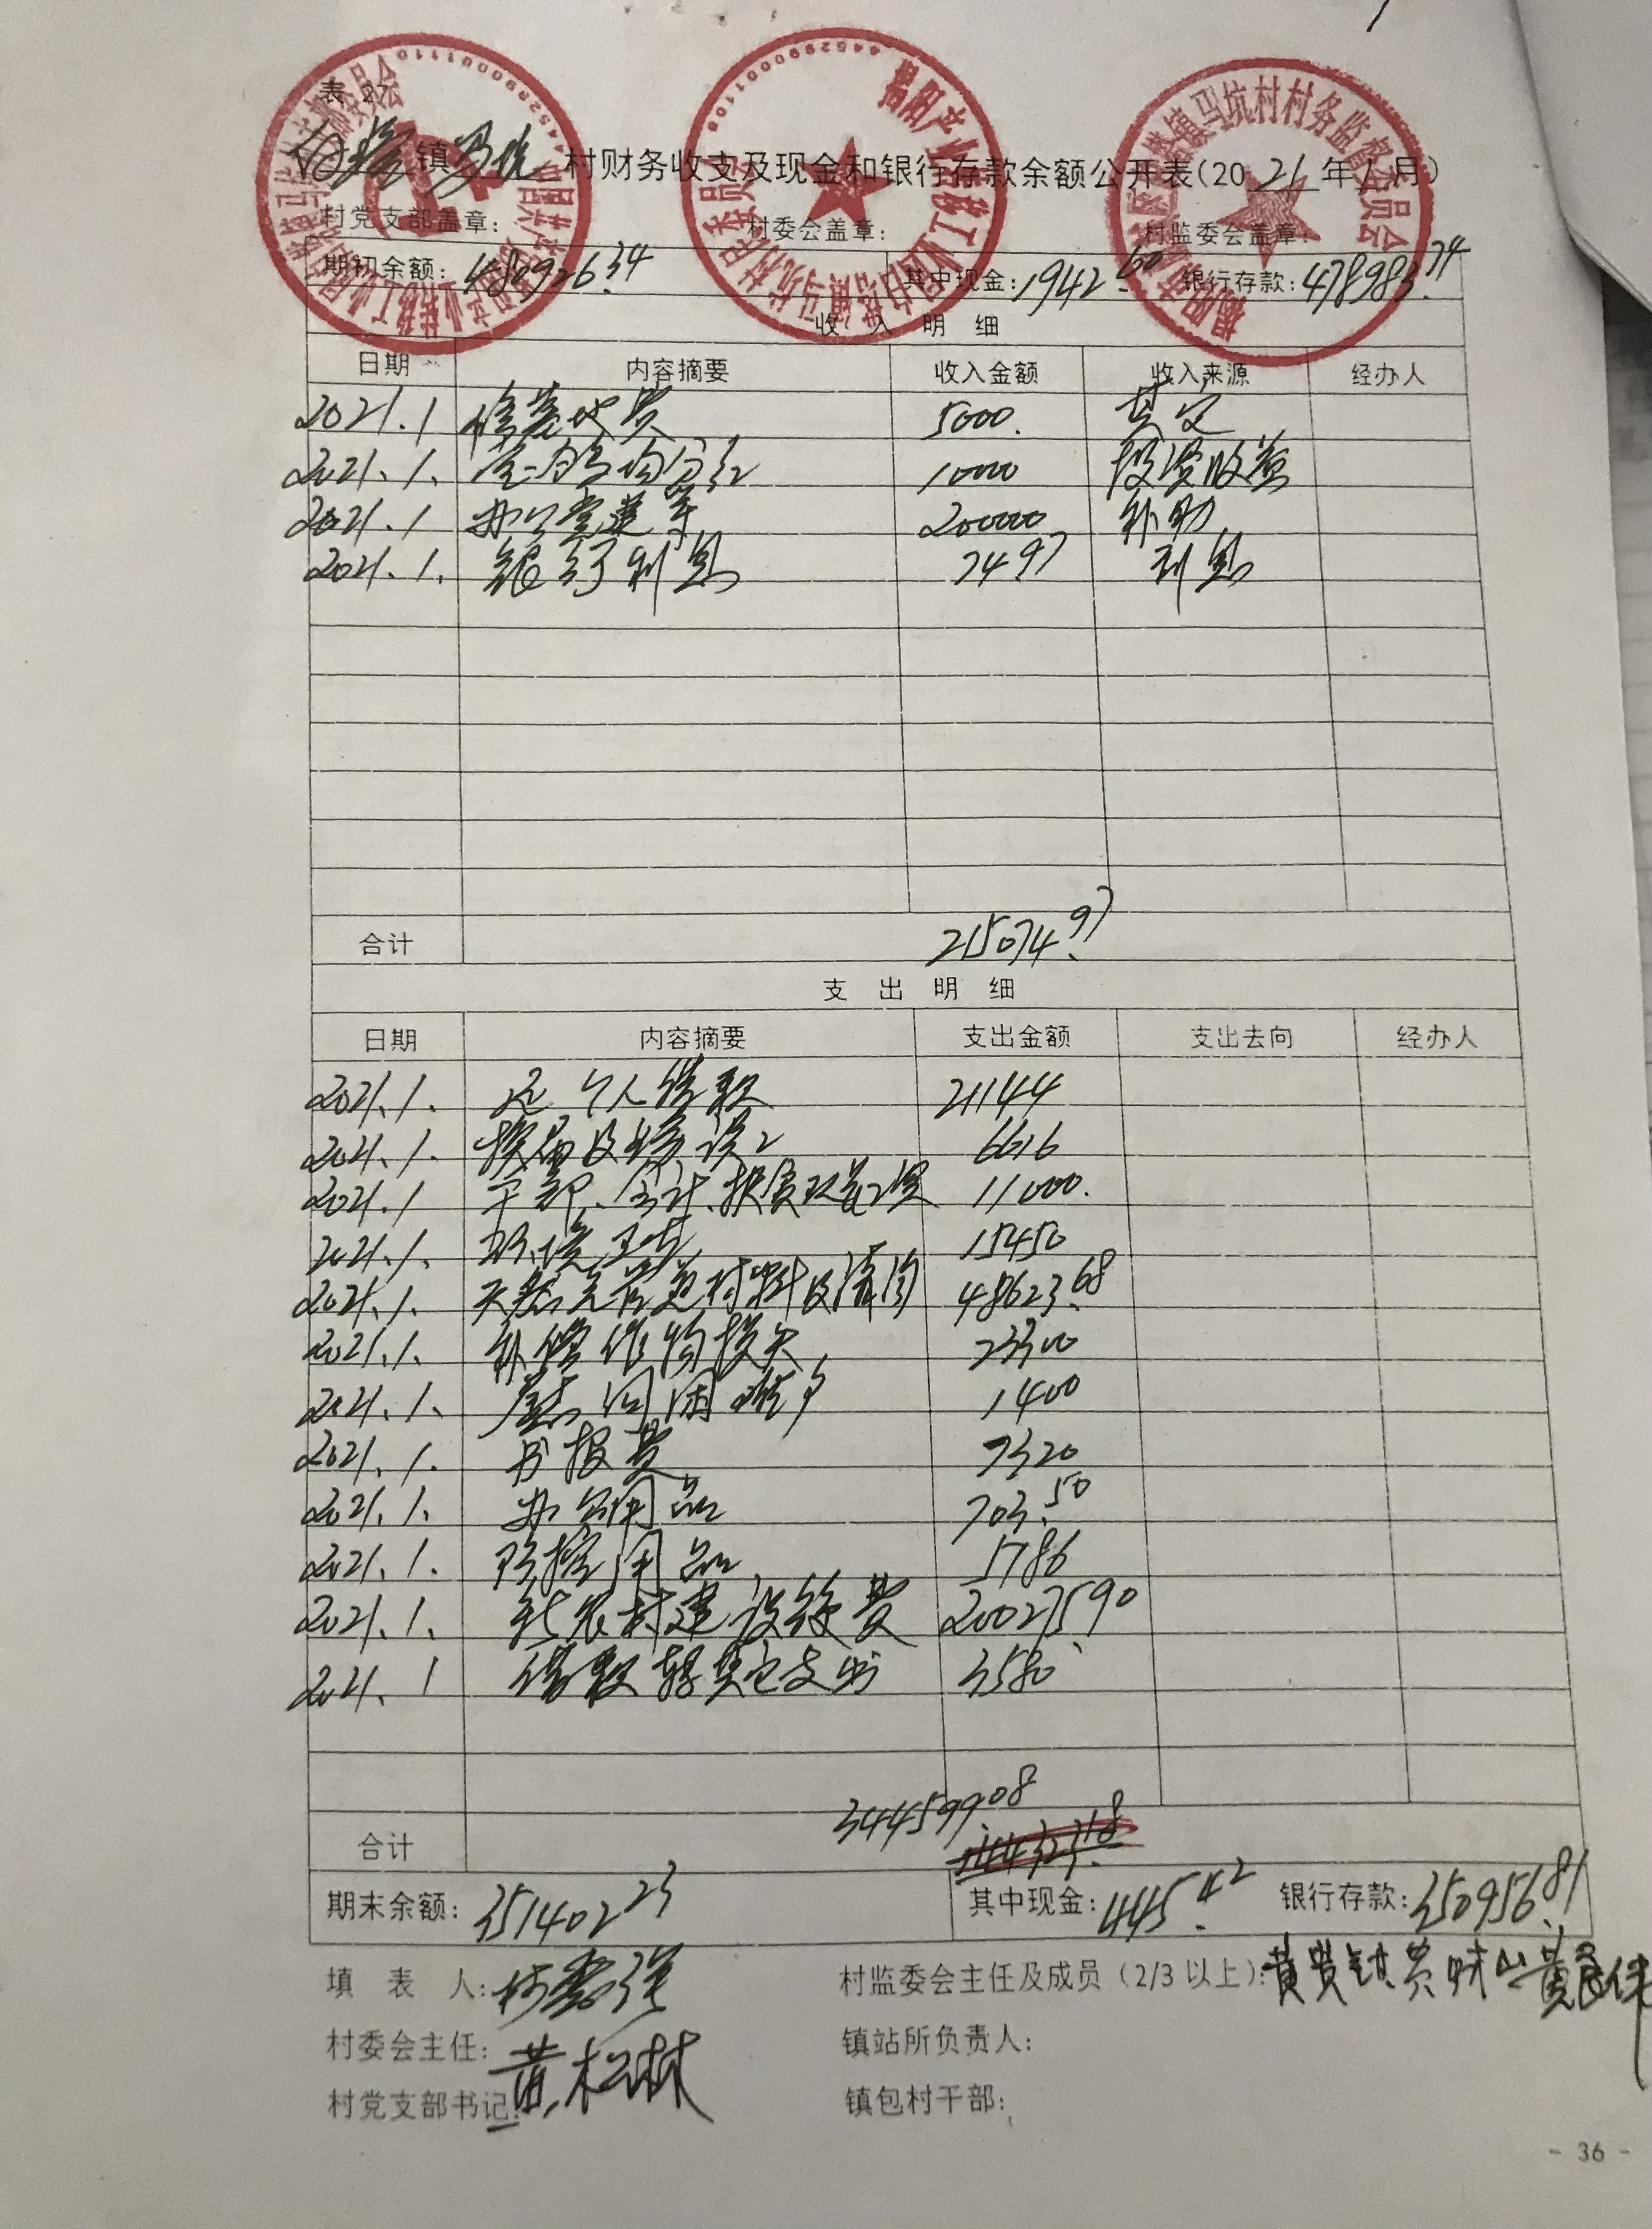 表 2
白塔镇马坑村财务收支及现金和银行存款余额公开表(2021年1月)
村党支部盖章: 村委会盖章: 村监委会盖章:
期初余额: 480926.34 其中现金: 1942.60 银行存款: 478983.74
收入明细
日期 内容摘要 收入金额 收入来源 经办人
2021.1 5000. 其它
2021.1. 10000 投资收益
2021.1 200000 补助
2021.1. 银行利息 74.97 利息
合计 215074.97
支出明细
日期 内容摘要 支出金额 支出去向 经办人
2021.1. 还个人借款 21144
2021.1. 6616
2021.1 11000.
2021.1. 环境卫生 15450
2021.1. 48623.68
2021.1. 补偿作物损失 23300
2021.1. 慰问困难户 1400
2021.1. 书报费 7320
2021.1. 办公用品 703.50
2021.1. 防控用品 1786
2021.1. 新农村建设 200275.90
2021.1 借款转其它支出 3580
344599.08
合计
期末余额: 351402.23 其中现金: 445.42 银行存款: 350956.81
填表人: 村监委会主任及成员(2/3以上):
村委会主任: 黄松林 镇站所负责人:
村党支部书记: 镇包村干部:
- 36 -